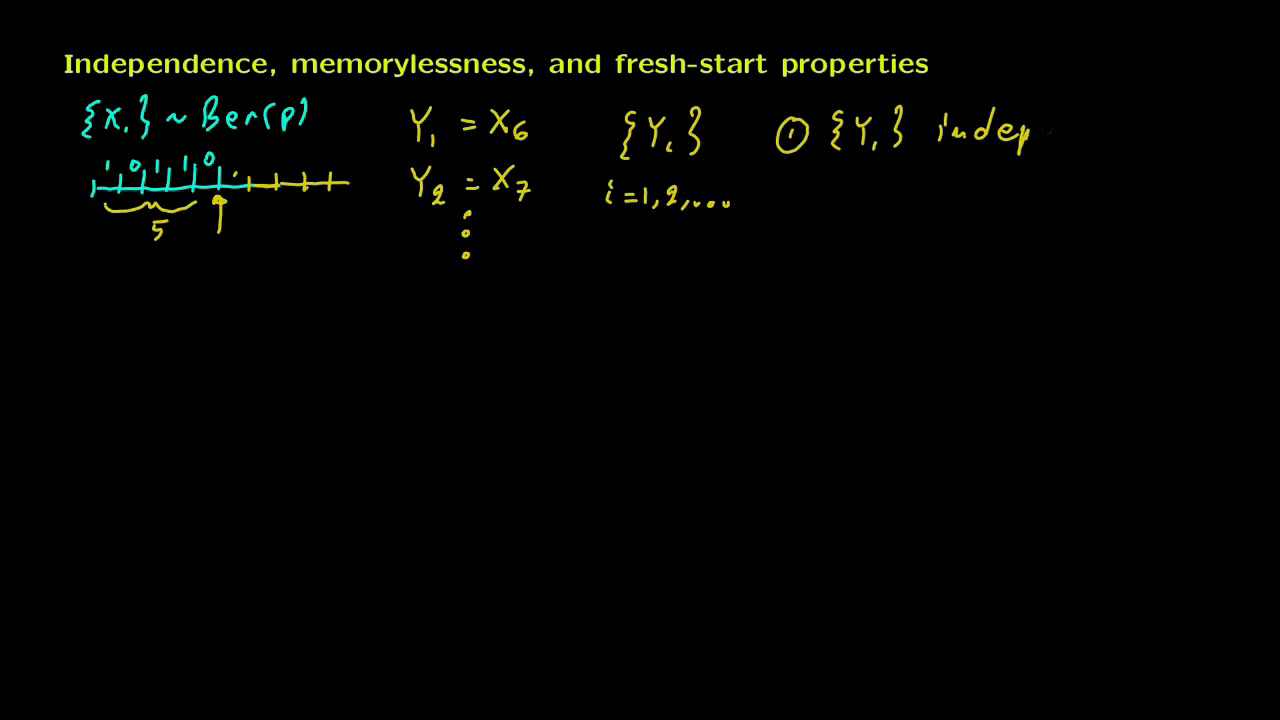 Independence, memorylessness, and fresh-start properties
{X_i} ~ Ber(p)
1 0 1 1 0
5
Y_1 = X_6
Y_2 = X_7
{Y_i}
i = 1, 2, ...
① {Y_i} indep